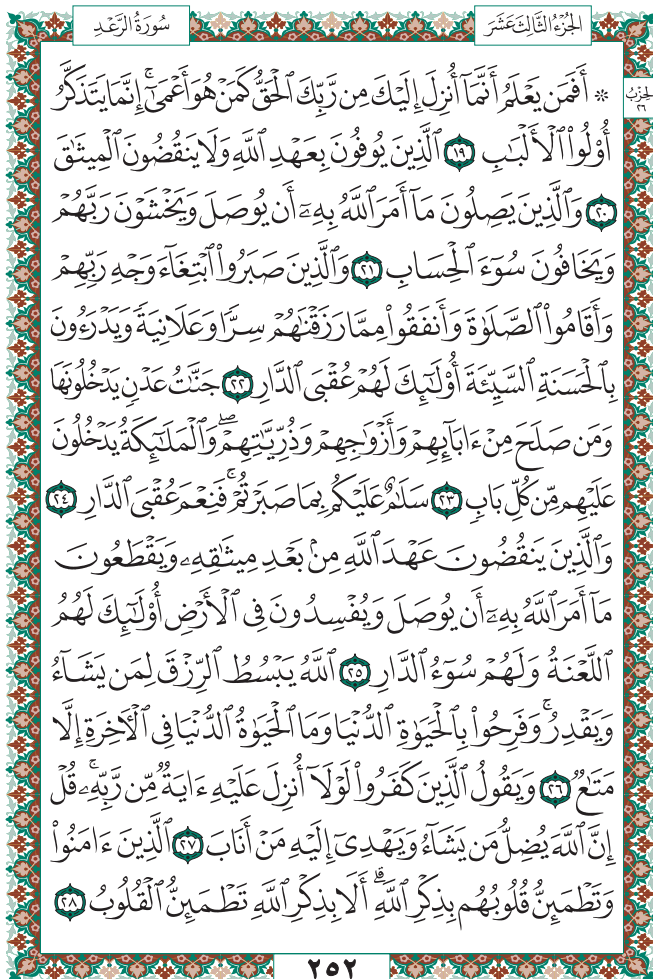 الجُزْءُ الثَّالِثَ عَشَرَ
سُورَةُ الرَّعْدِ
الحِزْبُ
٢٦
۞ أَفَمَن يَعْلَمُ أَنَّمَآ أُنزِلَ إِلَيْكَ مِن رَّبِّكَ ٱلْحَقُّ كَمَنْ هُوَ أَعْمَىٰٓۚ إِنَّمَا يَتَذَكَّرُ
أُو۟لُوا۟ ٱلْأَلْبَـٰبِ ١٩ ٱلَّذِينَ يُوفُونَ بِعَهْدِ ٱللَّهِ وَلَا يَنقُضُونَ ٱلْمِيثَـٰقَ
٢٠ وَٱلَّذِينَ يَصِلُونَ مَآ أَمَرَ ٱللَّهُ بِهِۦٓ أَن يُوصَلَ وَيَخْشَوْنَ رَبَّهُمْ
وَيَخَافُونَ سُوٓءَ ٱلْحِسَابِ ٢١ وَٱلَّذِينَ صَبَرُوا۟ ٱبْتِغَآءَ وَجْهِ رَبِّهِمْ
وَأَقَامُوا۟ ٱلصَّلَوٰةَ وَأَنفَقُوا۟ مِمَّا رَزَقْنَـٰهُمْ سِرًّا وَعَلَانِيَةً وَيَدْرَءُونَ
بِٱلْحَسَنَةِ ٱلسَّيِّئَةَ أُو۟لَـٰٓئِكَ لَهُمْ عُقْبَى ٱلدَّارِ ٢٢ جَنَّـٰتُ عَدْنٍ يَدْخُلُونَهَا
وَمَن صَلَحَ مِنْ ءَابَآئِهِمْ وَأَزْوَٰجِهِمْ وَذُرِّيَّـٰتِهِمْۖ وَٱلْمَلَـٰٓئِكَةُ يَدْخُلُونَ
عَلَيْهِم مِّن كُلِّ بَابٍ ٢٣ سَلَـٰمٌ عَلَيْكُم بِمَا صَبَرْتُمْۚ فَنِعْمَ عُقْبَى ٱلدَّارِ ٢٤
وَٱلَّذِينَ يَنقُضُونَ عَهْدَ ٱللَّهِ مِنۢ بَعْدِ مِيثَـٰقِهِۦ وَيَقْطَعُونَ
مَآ أَمَرَ ٱللَّهُ بِهِۦٓ أَن يُوصَلَ وَيُفْسِدُونَ فِى ٱلْأَرْضِ أُو۟لَـٰٓئِكَ لَهُمُ
ٱللَّعْنَةُ وَلَهُمْ سُوٓءُ ٱلدَّارِ ٢٥ ٱللَّهُ يَبْسُطُ ٱلرِّزْقَ لِمَن يَشَآءُ
وَيَقْدِرُۚ وَفَرِحُوا۟ بِٱلْحَيَوٰةِ ٱلدُّنْيَا وَمَا ٱلْحَيَوٰةُ ٱلدُّنْيَا فِى ٱلْـَٔاخِرَةِ إِلَّا
مَتَـٰعٌ ٢٦ وَيَقُولُ ٱلَّذِينَ كَفَرُوا۟ لَوْلَآ أُنزِلَ عَلَيْهِ ءَايَةٌ مِّن رَّبِّهِۦۚ قُلْ
إِنَّ ٱللَّهَ يُضِلُّ مَن يَشَآءُ وَيَهْدِىٓ إِلَيْهِ مَنْ أَنَابَ ٢٧ ٱلَّذِينَ ءَامَنُوا۟
وَتَطْمَئِنُّ قُلُوبُهُم بِذِكْرِ ٱللَّهِۗ أَلَا بِذِكْرِ ٱللَّهِ تَطْمَئِنُّ ٱلْقُلُوبُ ٢٨
٢٥٢